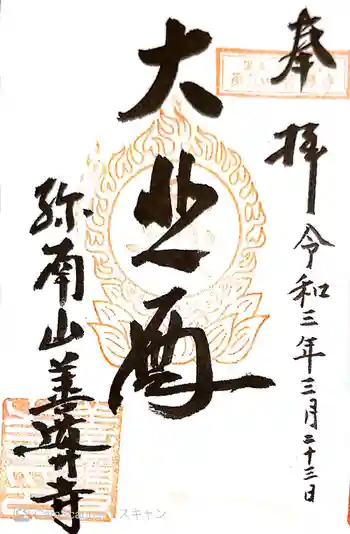 奉拝
令和三年三月二十三日
大悲
南山善導寺
スキャン